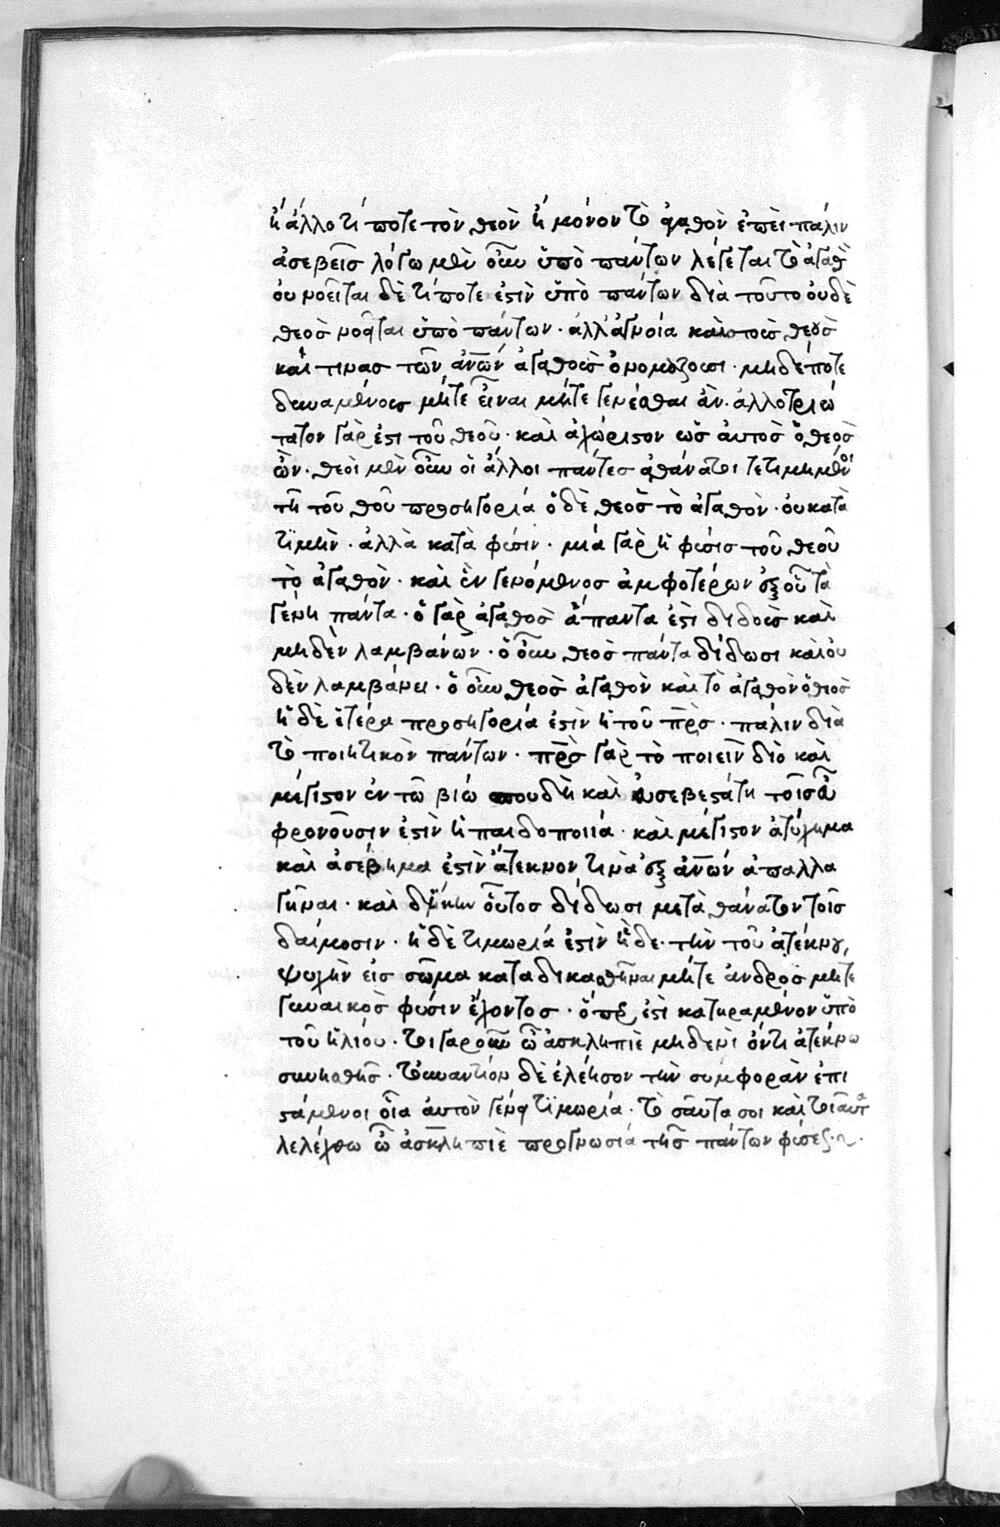 ἢ ἄλλό τί ποτε τὸν θεὸν ἢ μόνον τὸ ἀγαθὸν ἐπεὶ πάλιν
ἀσεβεῖς λόγω μὲν οὖν ὑπὸ πάντων λέγεται τὸ ἀγαθὸ
οὐ νοεῖται δὲ τί ποτε ἐστὶν ὑπὸ πάντων διὰ τοῦτο οὐδὲ
θεὸς νοεῖται ὑπὸ πάντων· ἀλλ' ἀγνοία καὶ τοὺς θεοὺς
καί τινας τῶν ἀνῶν ἀγαθοὺς ὀνομάζουσι· μηδέποτε
δυναμένους μήτε εἶναι μήτε γενέσθαι ἂν· ἀλλοτριώ
τατον γάρ ἐστι τοῦ θεοῦ· καὶ ἀχώριστον ὡς αὐτὸς ὁ θεὸς
ὢν· θεοὶ μὲν οὖν οἱ ἄλλοι πάντες ἀθάνατοι τετιμημένοι
τῆ τοῦ θυ προσηγορία ὁ δὲ θεὸς τὸ ἀγαθὸν· οὐ κατὰ
τιμὴν· ἀλλὰ κατὰ φύσιν· μία γὰρ ἡ φύσις τοῦ θεοῦ
τὸ ἀγαθὸν· καὶ ἓν γενόμενος ἀμφοτέρων ἐξ οὗ τὰ
γένη πάντα· ὁ γὰρ ἀγαθὸς ἅπαντα ἐστὶ διδοὺς καὶ
μηδὲν λαμβάνων· ὁ οὖν θεὸς πάντα δίδωσι καὶ οὐ
δὲν λαμβάνει· ὁ οὖν θεὸς ἀγαθὸν καὶ τὸ ἀγαθὸν ὁ θεὸς
ἡ δὲ ἑτέρα προσηγορία ἐστὶν ἡ τοῦ πρς· πάλιν διὰ
τὸ ποιητικὸν πάντων· πρς γὰρ τὸ ποιεῖν διὸ καὶ
μέγιστον ἐν τῶ βίω σπουδὴ καὶ εὐσεβεστάτη τοῖς εὖ
φρονοῦσιν ἐστὶν ἡ παιδοποιία· καὶ μέγιστον ἀτύχημα
καὶ ἀσέβημα ἐστὶν ἄτεκνον τινὰ ἐξ ἀνῶν ἀπαλλα
γῆναι· καὶ δίκην οὗτος δίδωσι μετὰ θάνατον τοῖς
δαίμοσιν· ἡ δὲ τιμωρία ἐστὶν ἥδε· τὴν τοῦ ἀτέκνου,
ψυχὴν εἰς σῶμα καταδικασθῆναι μήτε ἀνδρὸς μήτε
γυναικὸς φύσιν ἔχοντος· ὅπερ ἐστὶ κατηραμένον ὑπὸ
τοῦ ἡλίου· τοιγαροῦν ὦ ἀσκληπιὲ μηδενὶ ὄντι ἀτέκνω
συνησθῆς· τοὐναντίον δὲ ἐλέησον τὴν συμφορὰν ἐπι
στάμενοι οἷα αὐτὸν γένη τιμωρία· τοσαῦτα σοι καὶ τοιαῦτα
λελέχθω ὦ ἀσκληπιὲ προγνωσία τῆς πάντων φύσεως·